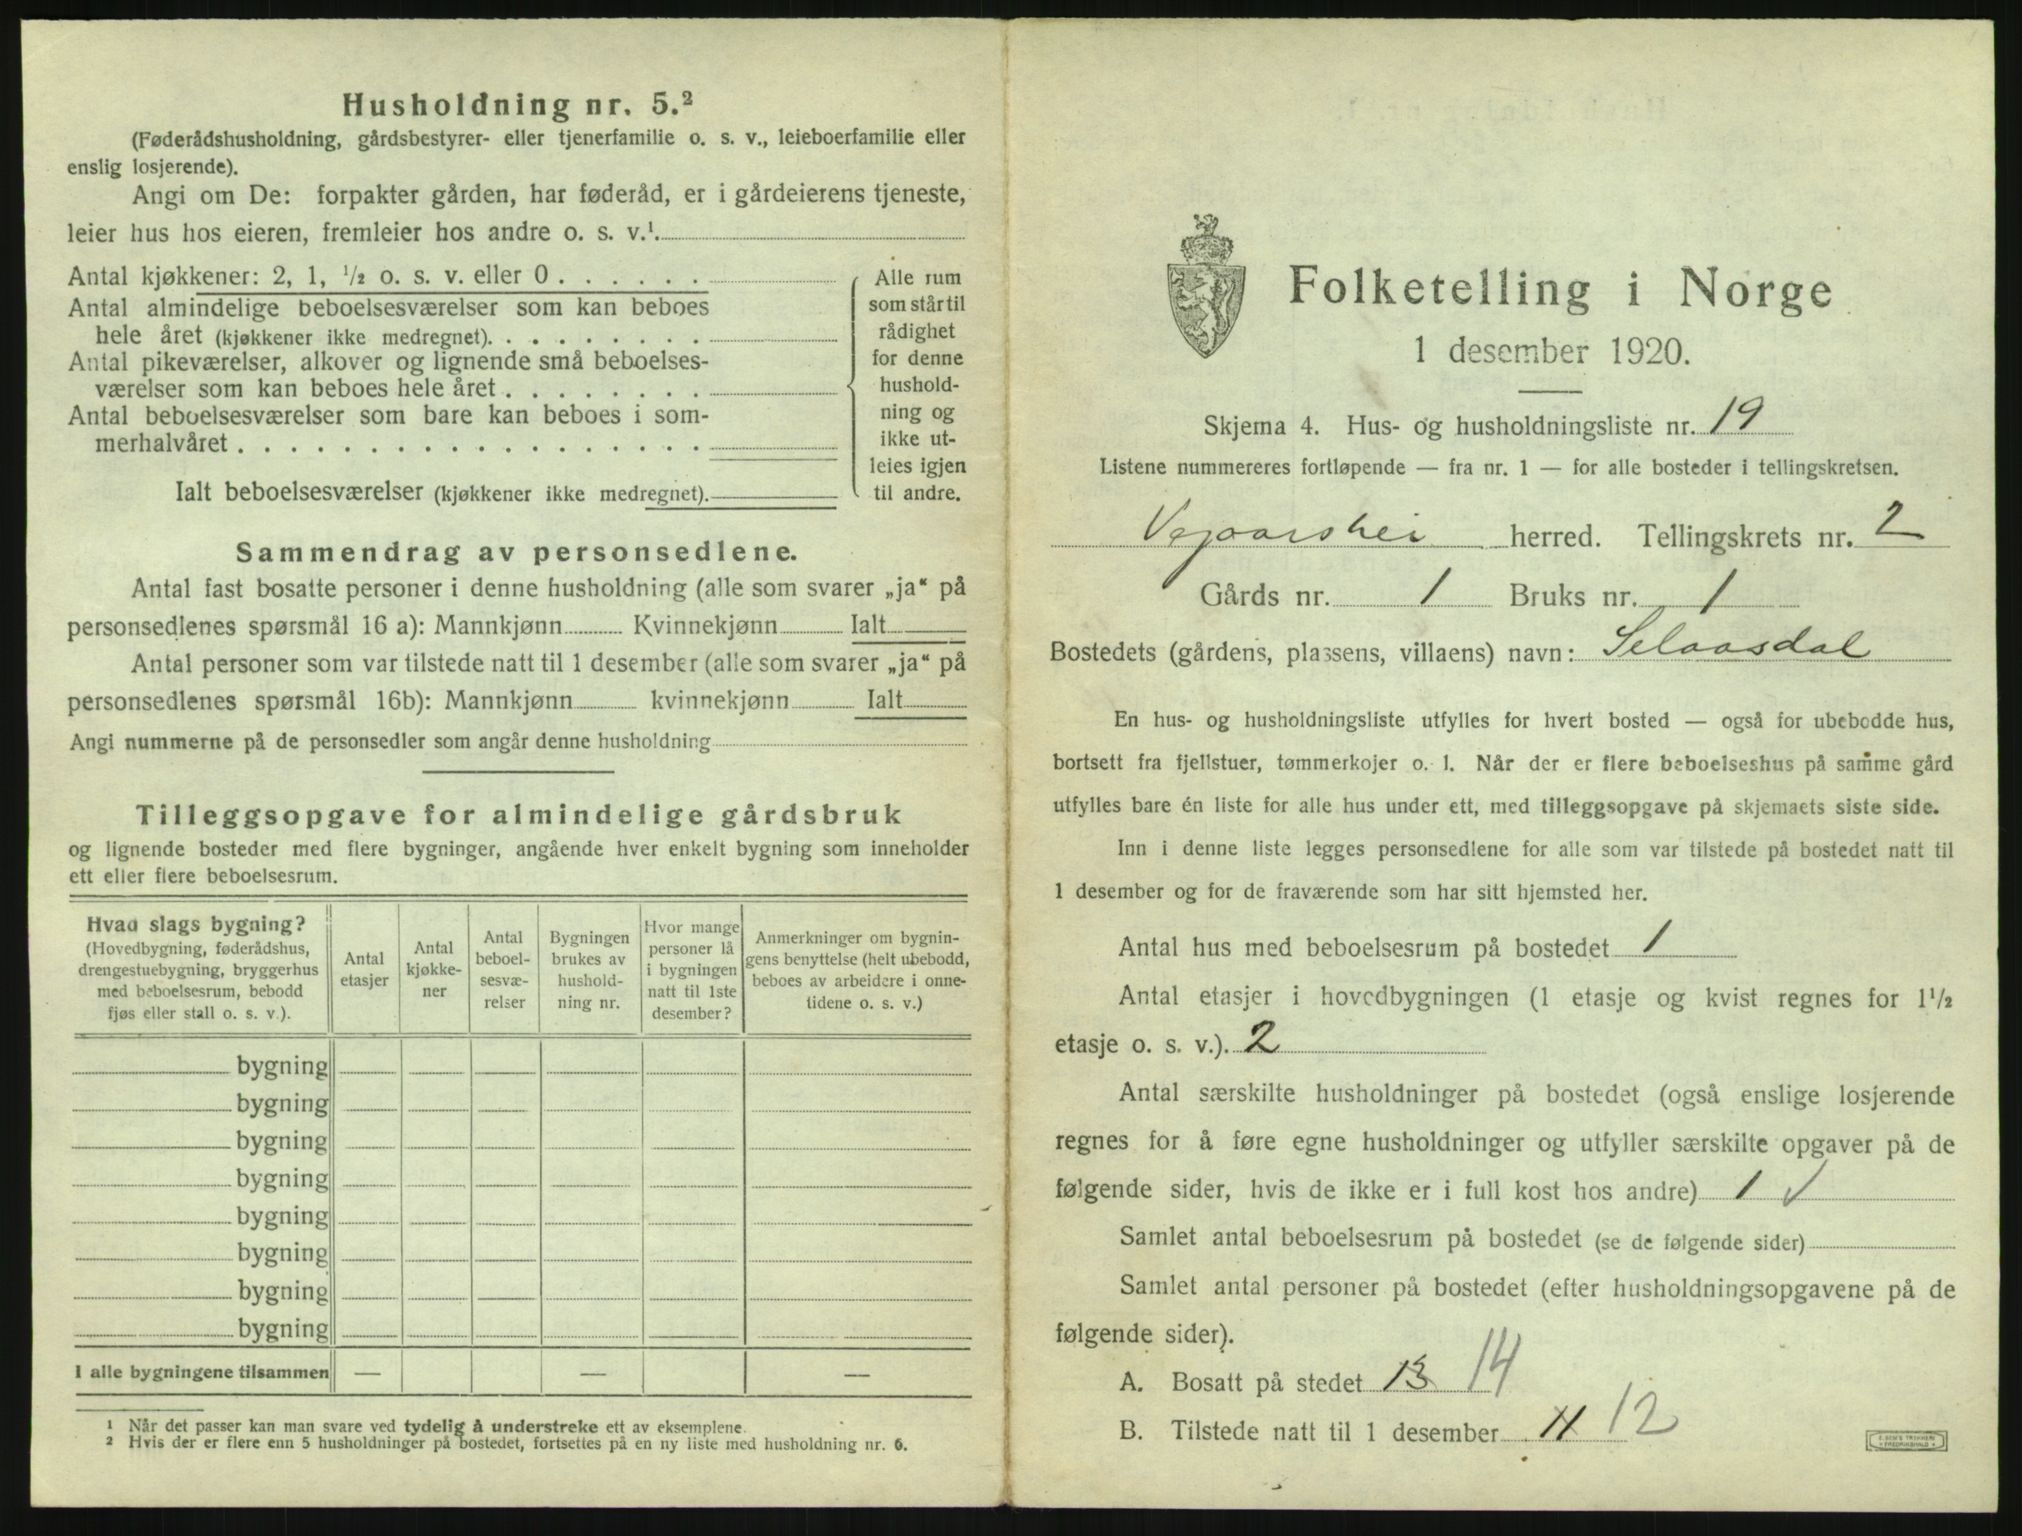 Husholdning nr. 5.²
(Føderådshusholdning, gårdsbestyrer- eller tjenerfamilie o. s. v., leieboerfamilie eller
enslig losjerende).
Angi om De: forpakter gården, har føderåd, er i gårdeierens tjeneste,
leier hus hos eieren, fremleier hos andre o. s. v.¹.
Antal kjøkkener: 2, 1, ½ o. s. v. eller 0 . . . . . .
Antal almindelige beboelsesværelser som kan beboes
hele året (kjøkkener ikke medregnet). . . . . . . . .
Antal pikeværelser, alkover og lignende små beboelses-
værelser som kan beboes hele året . . . . . . . .
Antal beboelsesværelser som bare kan beboes i som-
merhalvåret . . . . . . . . . . . . . . . . . .
Ialt beboelsesværelser (kjøkkener ikke medregnet).
Alle rum
som står til
rådighet
for denne
hushold-
ning og
ikke ut-
leies igjen
til andre.
Sammendrag av personsedlene.
Antal fast bosatte personer i denne husholdning (alle som svarer „ja“ på
personsedlenes spørsmål 16 a): Mannkjønn Kvinnekjønn Ialt
Antal personer som var tilstede natt til 1 desember (alle som svarer „ja“ på
personsedlenes spørsmål 16b): Mannkjønn kvinnekjønn Ialt
Angi nummerne på de personsedler som angår denne husholdning
Tilleggsopgave for almindelige gårdsbruk
og lignende bosteder med flere bygninger, angående hver enkelt bygning som inneholder
ett eller flere beboelsesrum.
Hvad slags bygning?
(Hovedbygning, føderådshus,
drengestuebygning, bryggerhus
med beboelsesrum, bebodd
fjøs eller stall o. s. v.).
Antal
etasjer
Antal
kjøkke-
ner
Antal
beboel-
sesvæ-
relser
Bygningen
brukes av
hushold-
ning nr.
Hvor mange
personer lå
i bygningen
natt til 1ste
desember?
Anmerkninger om bygnin-
gens benyttelse (helt ubebodd,
beboes av arbeidere i onne-
tidene o. s. v.)
bygning
bygning
bygning
bygning
bygning
bygning
bygning
bygning
I alle bygningene tilsammen — — —
¹ Når det passer kan man svare ved tydelig å understreke ett av eksemplene.
² Hvis der er flere enn 5 husholdninger på bostedet, fortsettes på en ny liste med husholdning nr. 6.
Folketelling i Norge
1 desember 1920.
Skjema 4. Hus- og husholdningsliste nr. 19
Listene nummereres fortløpende — fra nr. 1 — for alle bosteder i tellingskretsen.
Vegaarshei herred. Tellingskrets nr. 2
Gårds nr. 1 Bruks nr. 1
Bostedets (gårdens, plassens, villaens) navn: Selaasdal
En hus- og husholdningsliste utfylles for hvert bosted — også for ubebodde hus,
bortsett fra fjellstuer, tømmerkojer o. l. Når der er flere beboelseshus på samme gård
utfylles bare én liste for alle hus under ett, med tilleggsopgave på skjemaets siste side.
Inn i denne liste legges personsedlene for alle som var tilstede på bostedet natt til
1 desember og for de fraværende som har sitt hjemsted her.
Antal hus med beboelsesrum på bostedet 1
Antal etasjer i hovedbygningen (1 etasje og kvist regnes for 1½
etasje o. s. v.). 2
Antal særskilte husholdninger på bostedet (også enslige losjerende
regnes for å føre egne husholdninger og utfyller særskilte opgaver på de
følgende sider, hvis de ikke er i full kost hos andre) 1 √
Samlet antal beboelsesrum på bostedet (se de følgende sider)
Samlet antal personer på bostedet (efter husholdningsopgavene på de
følgende sider).
A. Bosatt på stedet 13 14
B. Tilstede natt til 1 desember 11 12